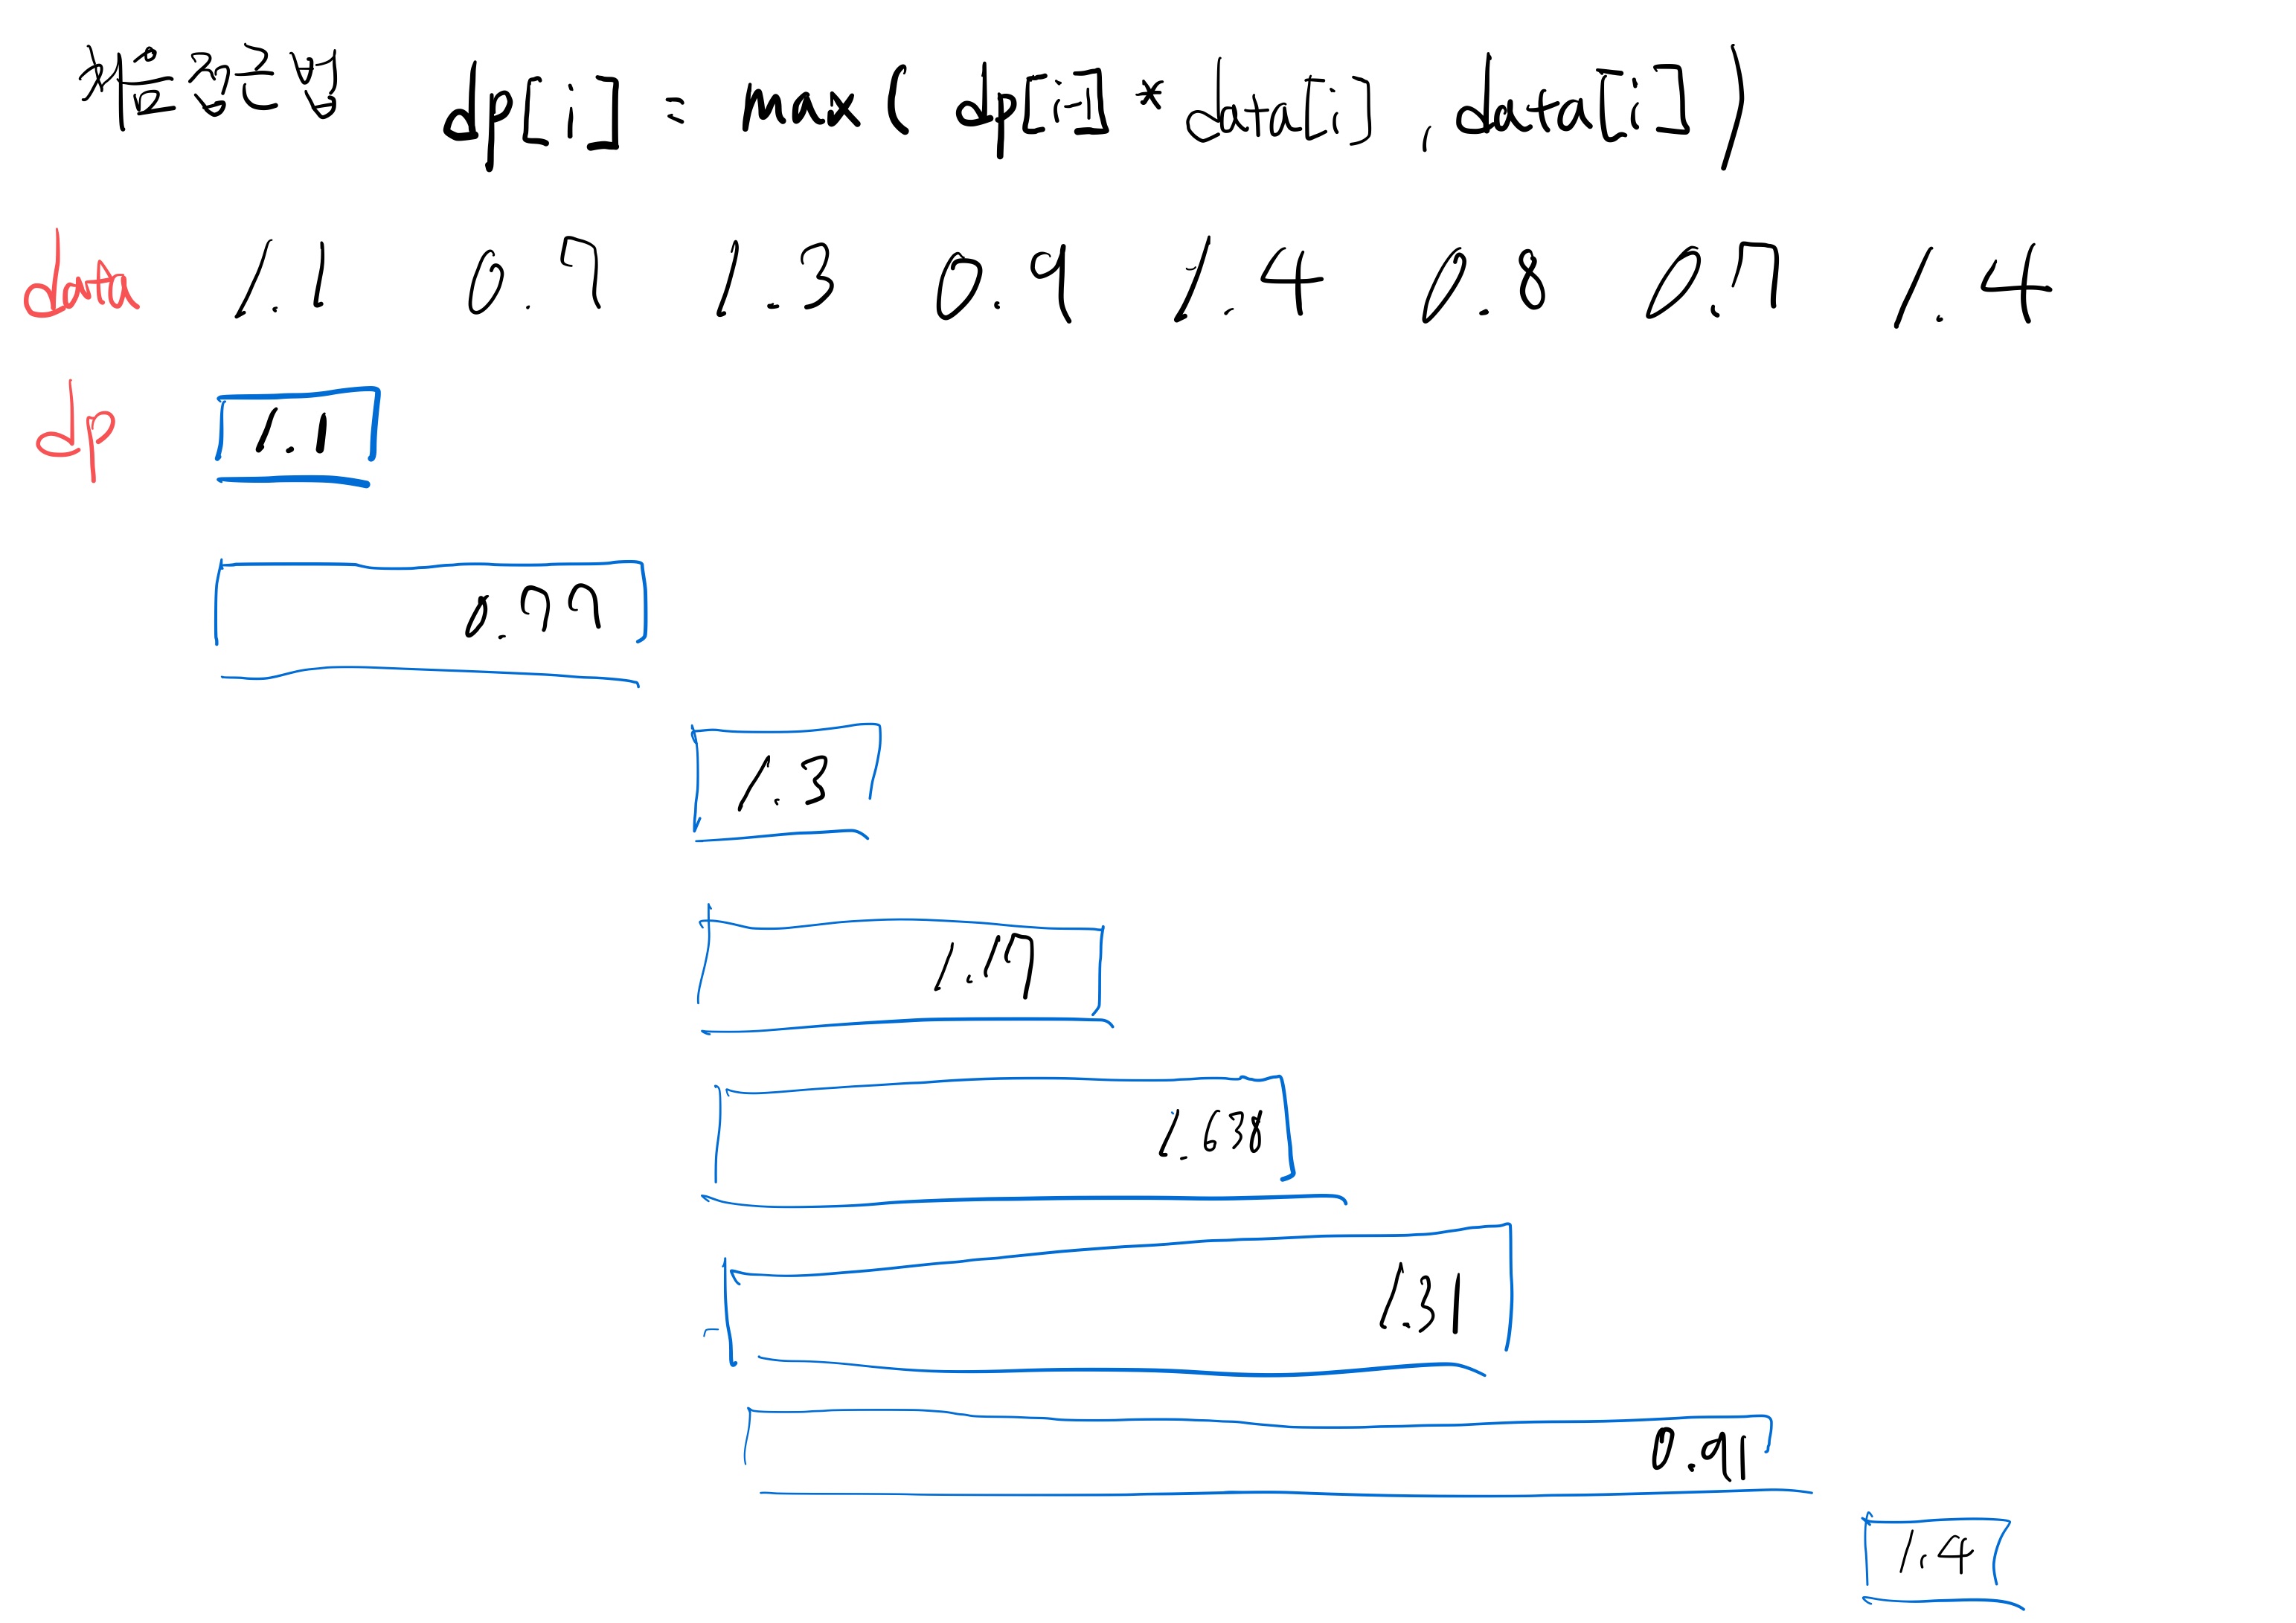 dp[i] = max( dp[i-1] * data[i] , data[i] )
data 1.1 0.7 1.3 0.9 1.4 0.8 0.7 1.4
dp 1.1
0.77
1.3
1.17
1.638
1.31
0.91
1.4